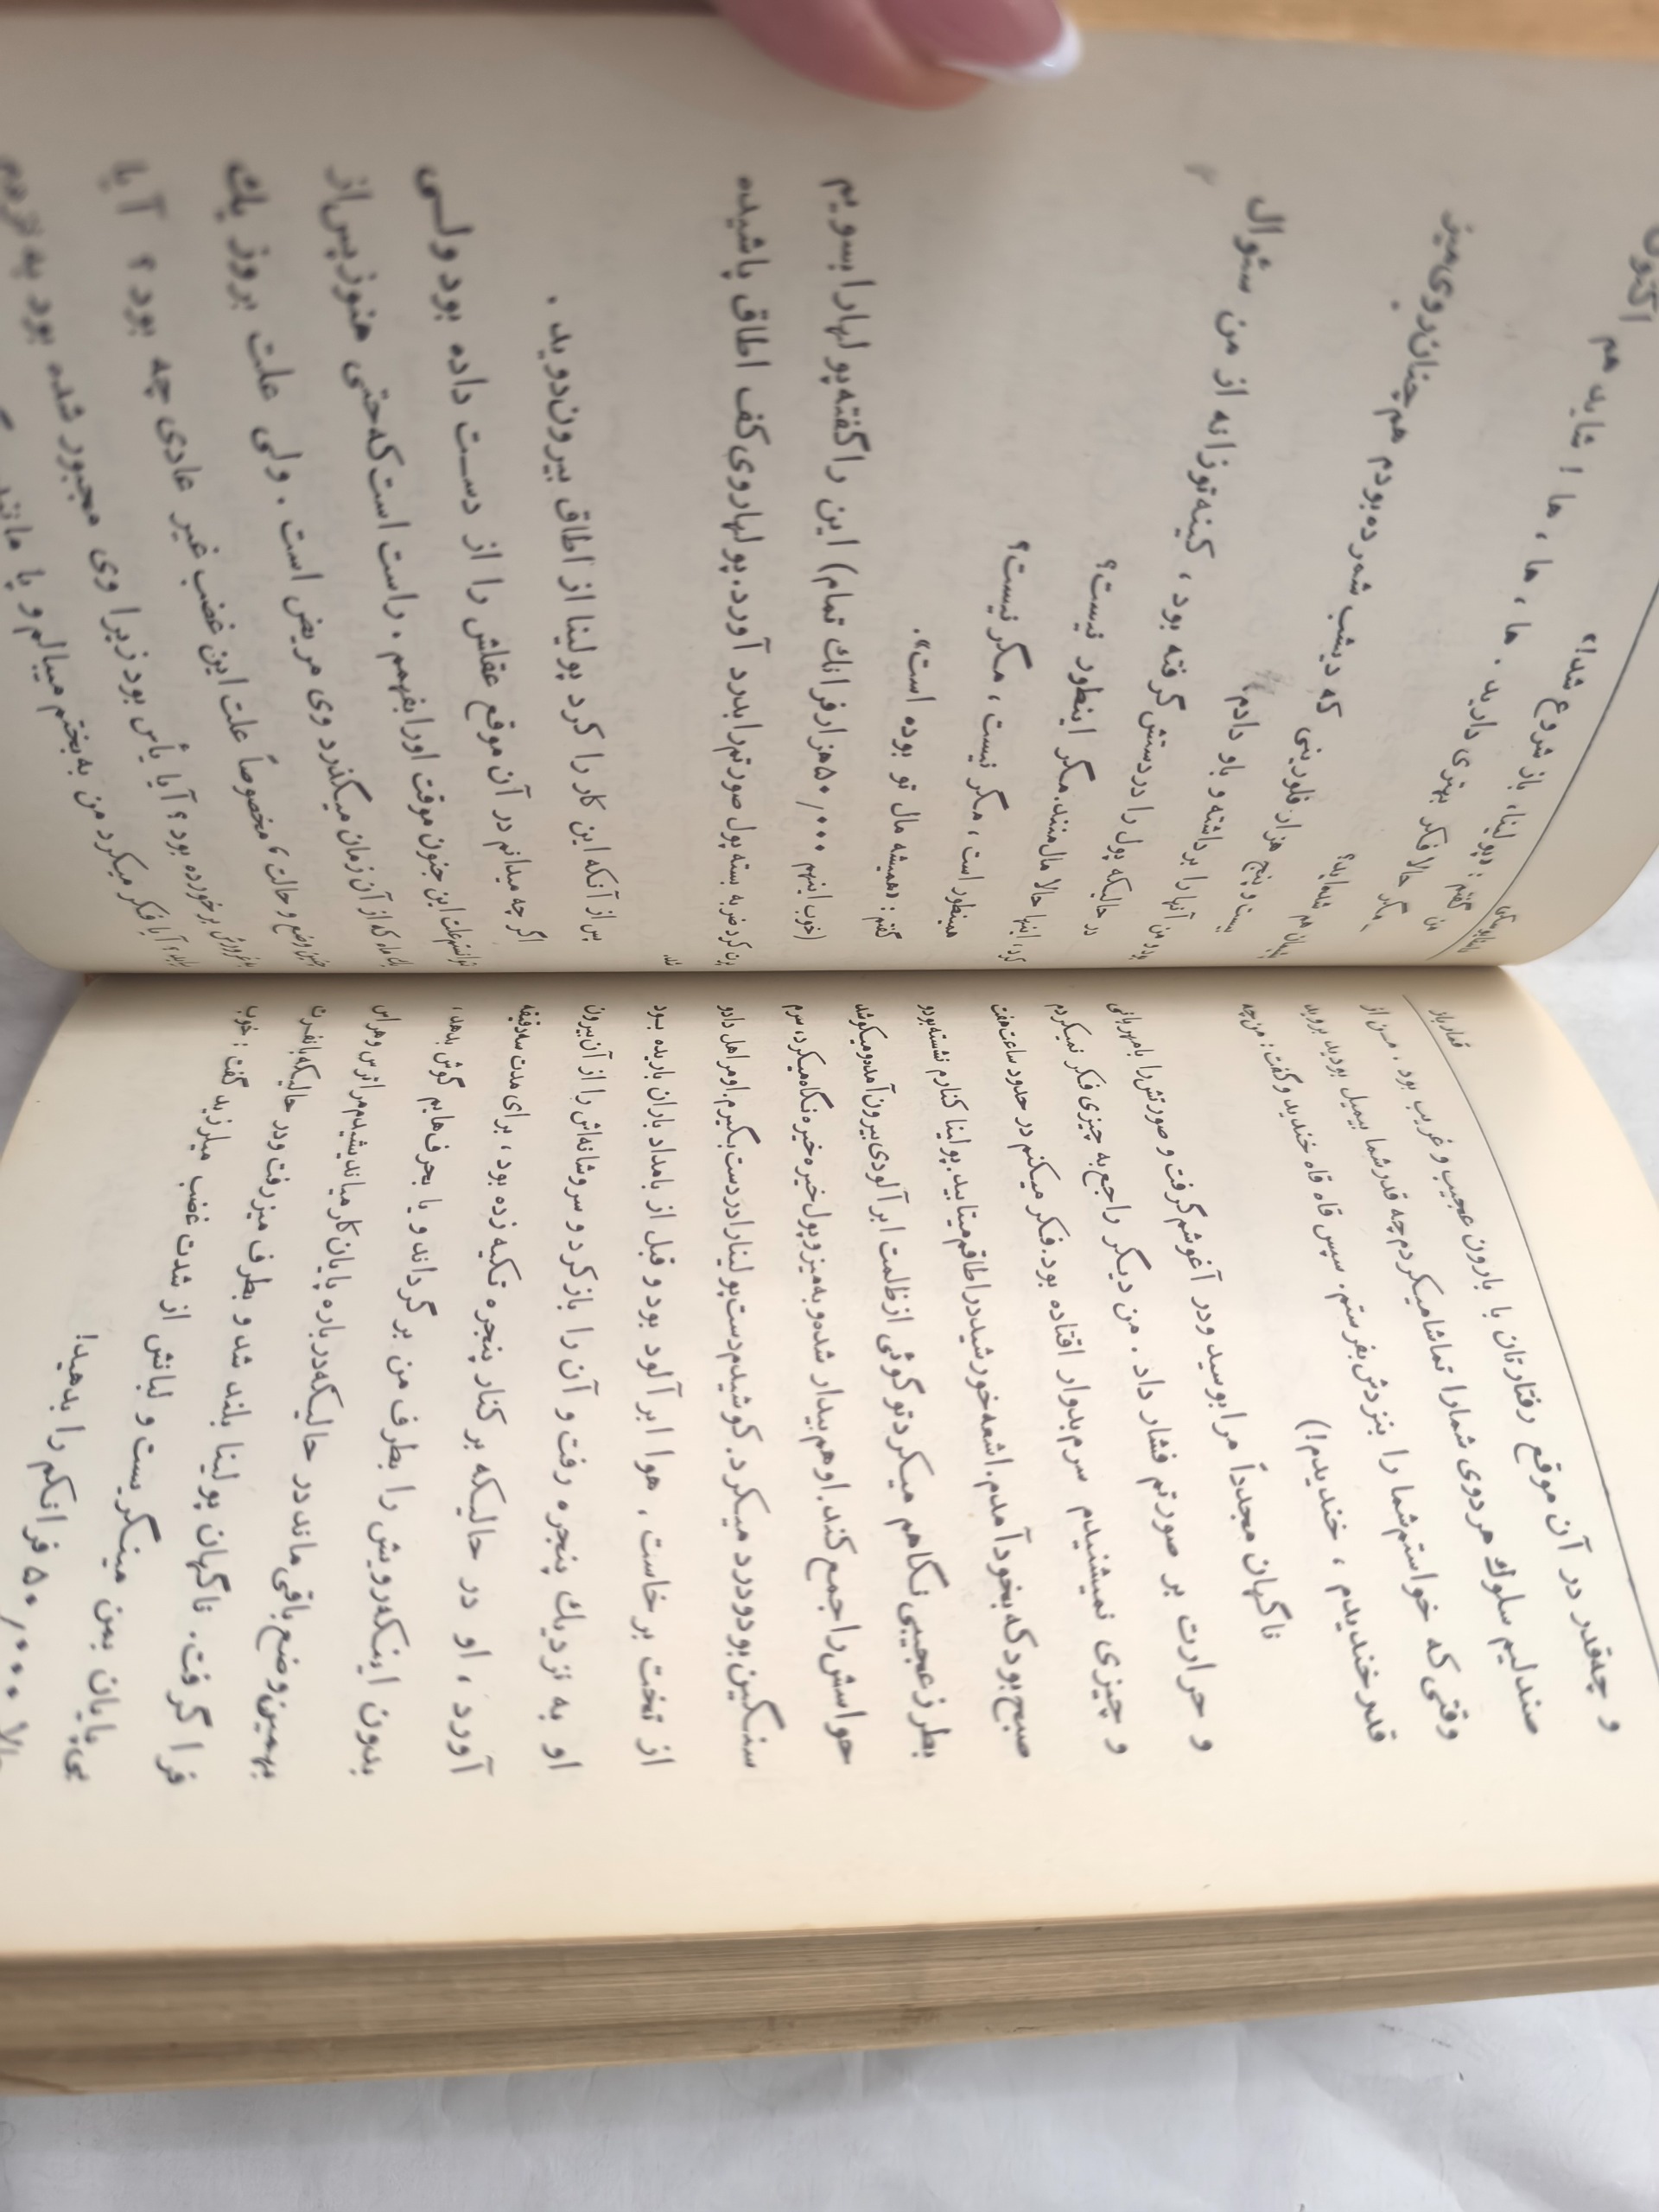 قمارباز
و چه‌قدر در آن موقع رفتارتان با بارون عجیب و غریب بود . من از
صندلیم سلوك هردوی شمارا تماشا میکردم چه قدر شما بیمیل بودید بروید
وقتی که خواستم شما را بنزدش بفرستم . سپس قاه قاه خندید و گفت : من چه
قدر خندیدم ، خندیدم!)
ناگهان مجدداً مرا بوسید و در آغوشم گرفت و صورتش را بامهربانی
و حرارت بر صورتم فشار داد . من دیگر راجع به چیزی فکر نمیکردم
و چیزی نمیشنیدم سرم بدوار افتاده بود. فکر میکنم در حدود ساعت هفت
صبح بود که بخود آمدم. اشعه خورشید در اطاقم میتابید. پولینا کنارم نشسته بود و
بطرز عجیبی نگاهم میکرد تو گوئی از ظلمت ابر آلودی بیرون آمده و میکوشد
حواسش را جمع کند. او هم بیدار شده و به میز و پول خیره خیره نگاه میکرد، سرم
سنگین بود و درد میکرد. کوشیدم دست پولینا را در دست بگیرم. او مرا هل داد و
از تخت برخاست ، هوا ابر آلود بود و قبل از بامداد باران باریده بود
او به نزدیك پنجره رفت و آن را باز کرد و سر و شانه‌اش را از آن بیرون
آورد ، او در حالیکه بر کنار پنجره تکیه زده بود ، برای مدت سه دقیقه
بدون اینکه رویش را بطرف من بر گرداند و یا بحرف‌هایم گوش بدهد ،
بهمین وضع باقی ماند در حالیکه درباره پایان کار میاندیشیدم مرا ترس و هراس
فرا گرفت. ناگهان پولینا بلند شد و بطرف میز رفت و در حالیکه با نفرت
بی‌پایان بمن مینگریست و لبانش از شدت غضب میلرزید گفت : خوب
حالا ۵۰/۰۰۰ فرانکم را بدهید!
«پولینا، باز شروع شد!»
من گفتم: مگر حالا فکر بهتری دارید . ها ، ها ، ها ! شاید هم اکنون
پشیمان هم شده‌اید؟
بیست و پنج هزار فلورینی که دیشب شمرده بودم هم‌چنان روی میز
بود من آنها را برداشته و باو دادم.
در حالیکه پول را در دستش گرفته بود ، کینه‌توزانه از من سئوال
کرد، اینها حالا مال منند. مگر اینطور نیست؟
همینطور است ، مگر نیست ، مگر نیست؟
گفتم: «همیشه مال تو بوده است».
(خوب اینهم ۵۰/۰۰۰ هزار فرانك تمام) این را گفته پولها را بسویم
پرت کرد ضربه بسته پول صورتم را بدرد آورد. پولها روی کف اطاق پاشیده
شد.
پس از آنکه این کار را کرد پولینا از اطاق بیرون دوید .
اگر چه میدانم در آن موقع عقلش را از دست داده بود ولی
نتوانستم علت این جنون موقت اورا بفهمم . راست است که حتی هنوز پس از
یك ماه که از آن زمان میگذرد وی مریض است . ولی علت بروز یك
چنین وضع و حالت ، مخصوصاً علت این غضب غیر عادی چه بود ؟ آیا
به غرورش برخورده بود؟ آیا یأس بود زیرا وی مجبور شده بود به نزدم
بیاید؟ آیا فکر میکرد من به بختم میبالم و یا مانند